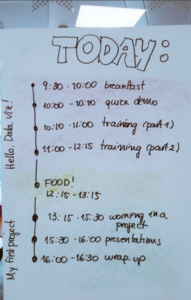 TODAY:
9:30 - 10:00 breakfast
10:00 - 10:10 quick demo
10:10 - 11:00 training (part 1)
11:00 - 12:15 training (part 2)
FOOD!
12:15 - 13:15
13:15 - 15:30 working in a
project
15:30 - 16:00 presentations
16:00 - 16:30 wrap up
Hello, Data Viz!
My first project